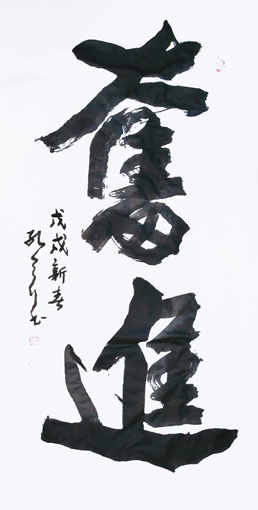 奮進
戊戌新春
孔